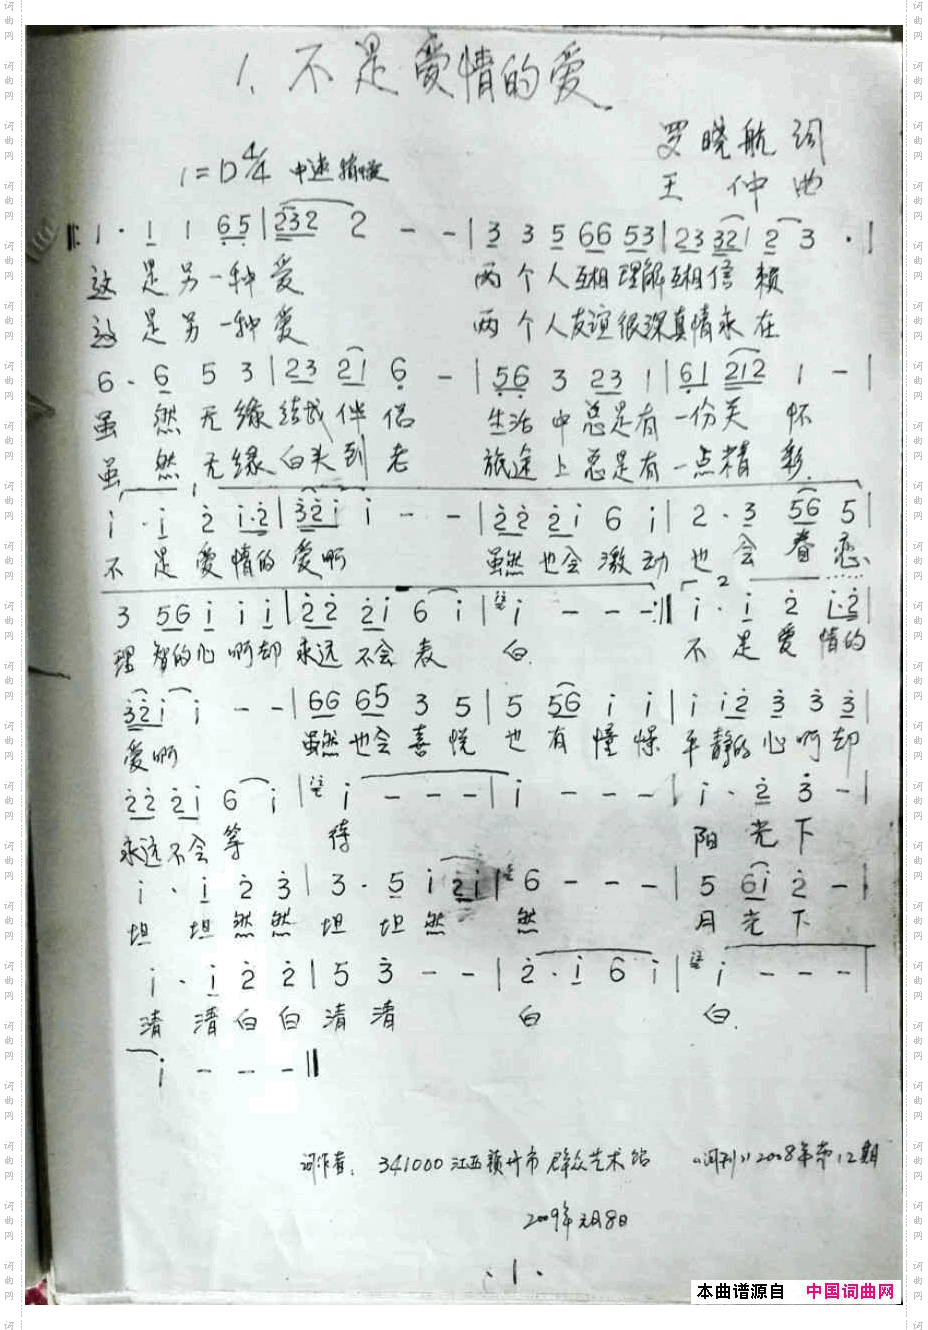 1、不是爱情的爱
罗晓航 词
1=D 4/4 中速
王 仲 曲
1· 1 1 65 | 232 2 - - | 3 3 5 66 53 | 23 32 2 3 · |
这 是 另 一种 爱 两 个 人 互相 理解 互相 信 赖
这 是 另 一种 爱 两 个 人 友谊 很深 真情 永 在
6· 6 5 3 | 23 21 6 - | 56 3 23 1 | 61 212 1 - |
虽 然 无 缘 结成 伴 侣 生活 中 总是 有 一份 关 怀
虽 然 无 缘 白头 到 老 旅途 上 总是 有 一点 精 彩
1
i · i 2 i·2 | 32i i - - | 22 2i 6 i | 2 · 3 56 5 |
不 是 爱 情的 爱啊 虽然 也会 激 动 也 会 眷 恋
2
3 56 i i i | 22 2i 6 i | i - - - :‖ i · i 2 i·2 |
理 智的 心 啊 却 永远 不会 表 白. 不 是 爱 情的
32i i - - | 66 65 3 5 | 5 56 i i | i i2 3 3 3 |
爱啊 虽然 也会 喜 悦 也 有 憧 憬 平 静的 心 啊 却
22 2i 6 i | i - - - | i - - - | i · 2 3 - |
永远 不会 等 待 阳 光 下
i · i 2 3 | 3 · 5 i 2i | 6 - - - | 5 6i 2 - |
坦 坦 然 然 坦 坦 然 然 月 光 下
i · i 2 2 | 5 3 - - | 2 · i 6 i | i - - - |
清 清 白 白 清 清 白 白.
i - - - ‖
词作者: 341000 江西赣州市 群众艺术馆 《词刊》2008年第12期
2009年元月8日
·1·
本曲谱源自 中国词曲网